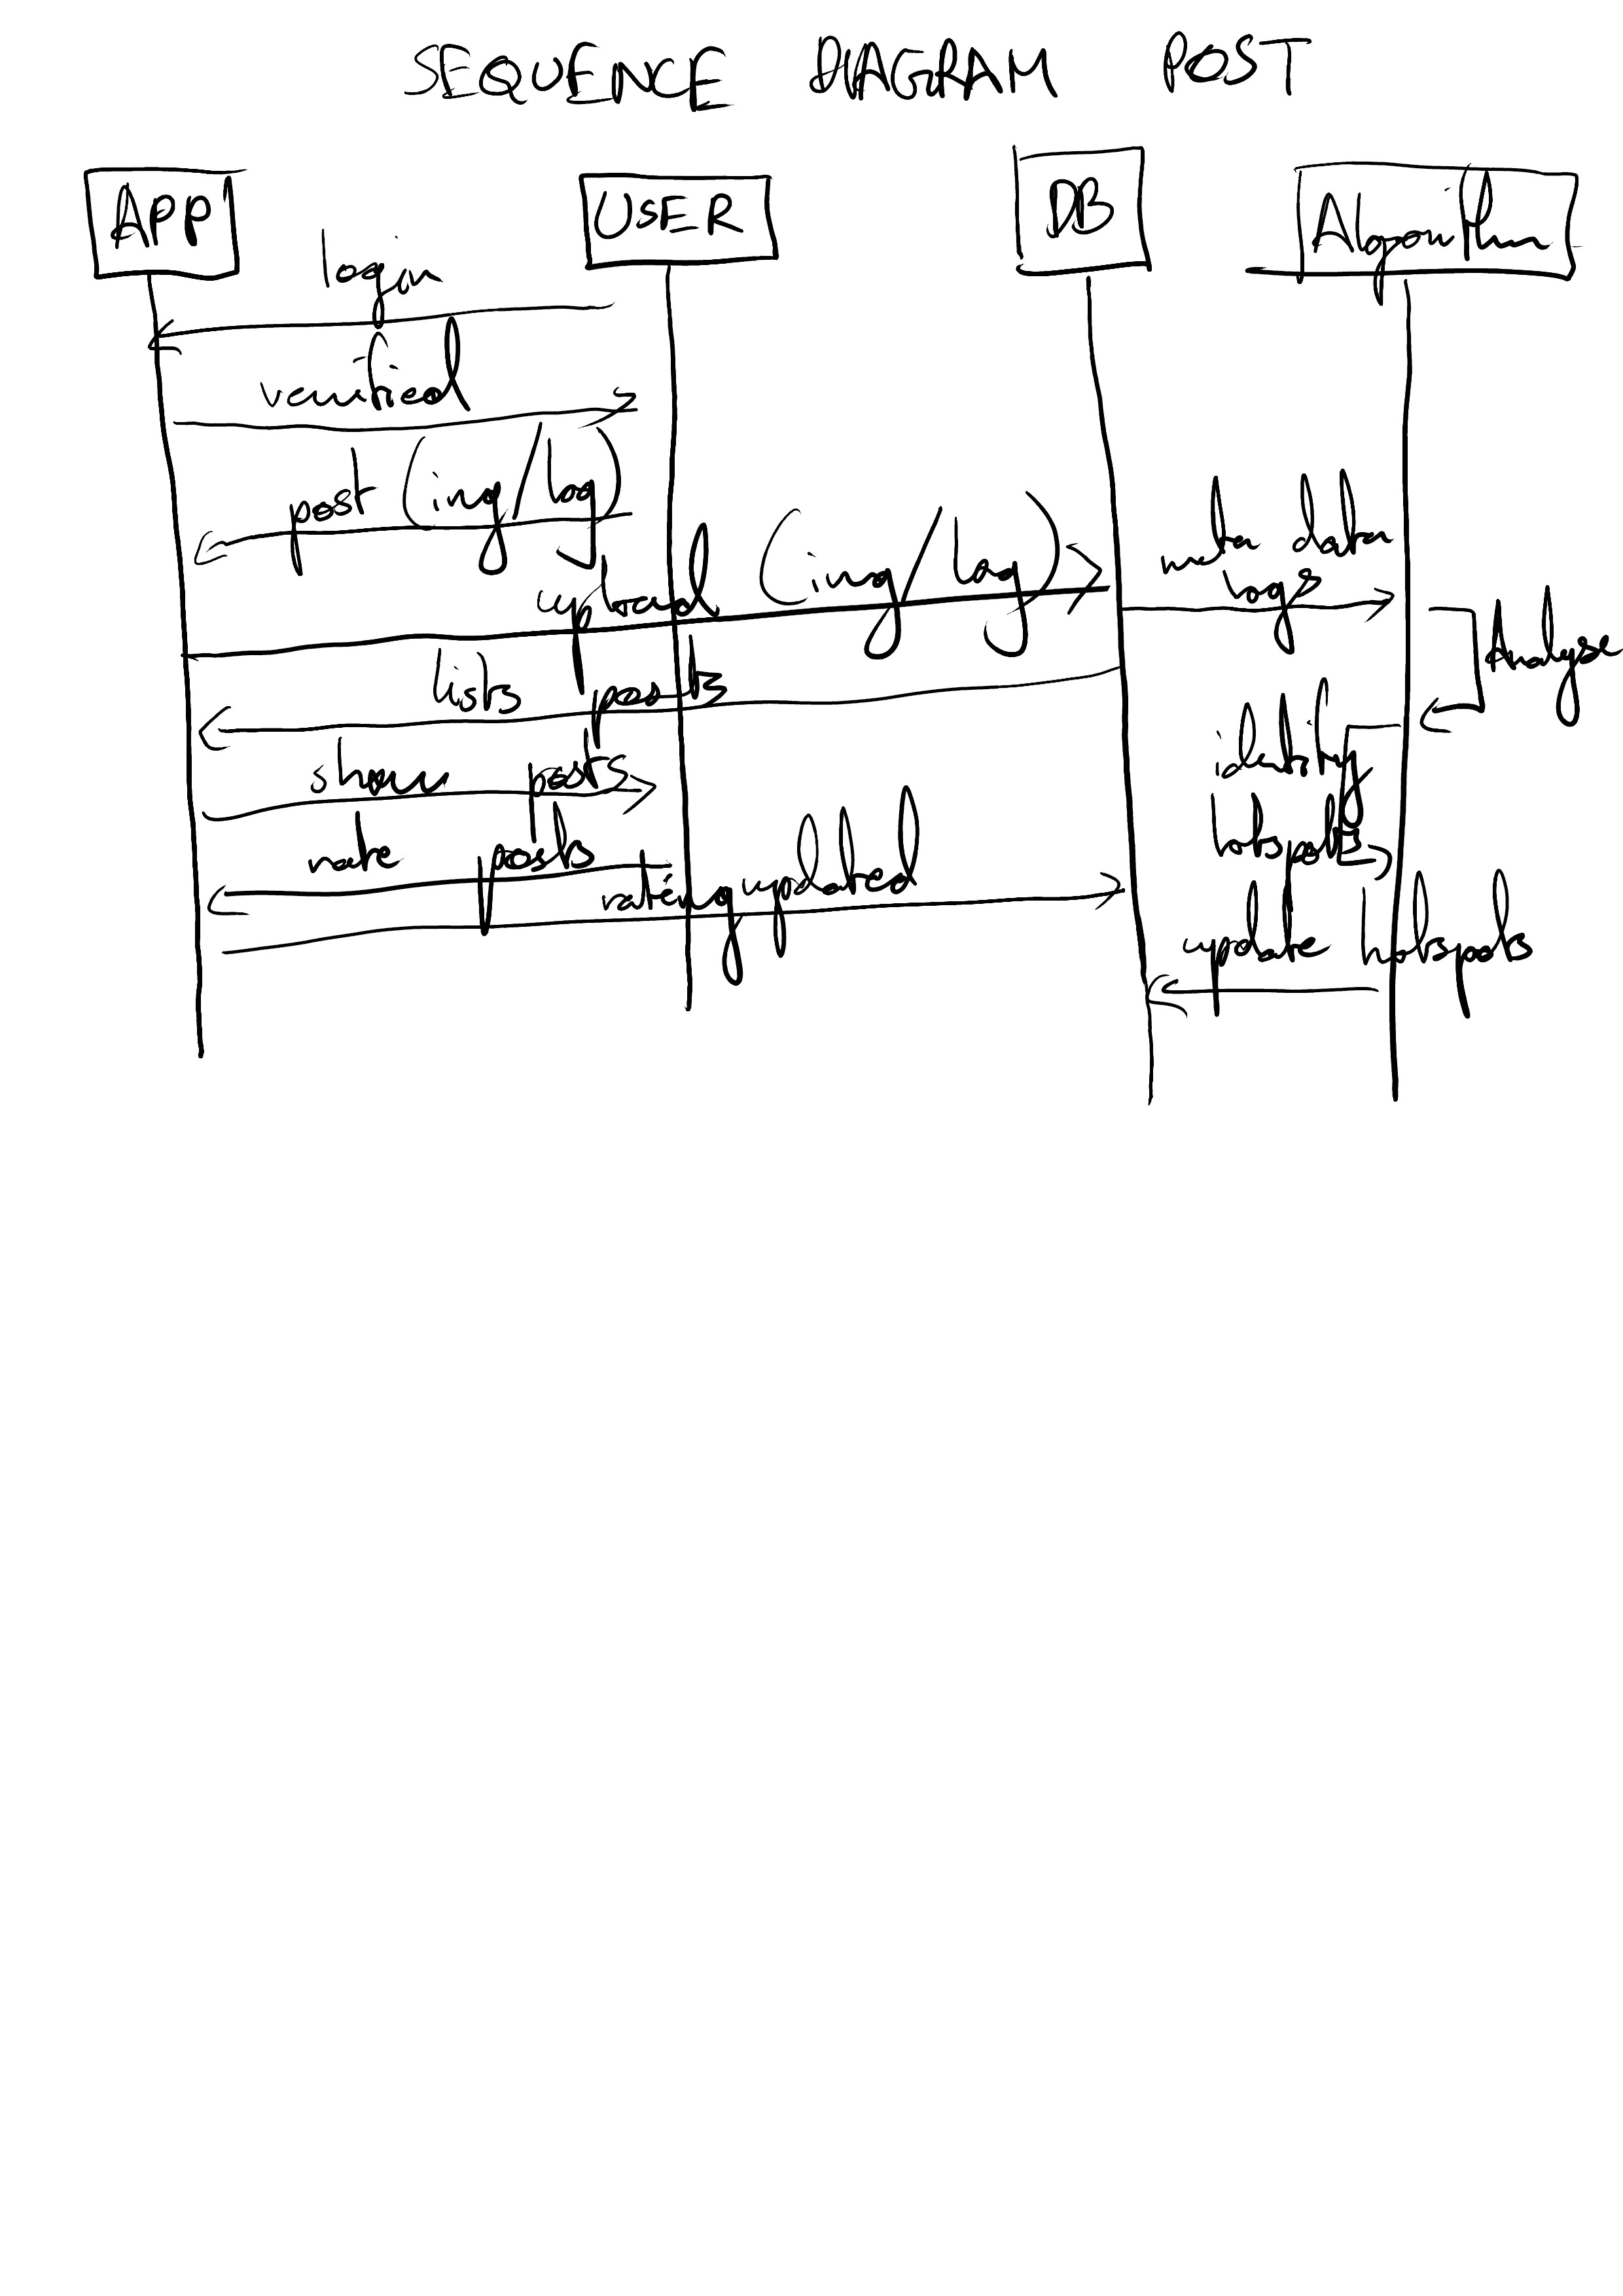 SEQUENCE DIAGRAM POST
APP
USER
DB
Algorithm
login
verified
post (img/log)
upload (img/log)
meta data
logs
Analyse
lists posts
identify
hotspots
show posts
rate posts
rating updated
update hotspots